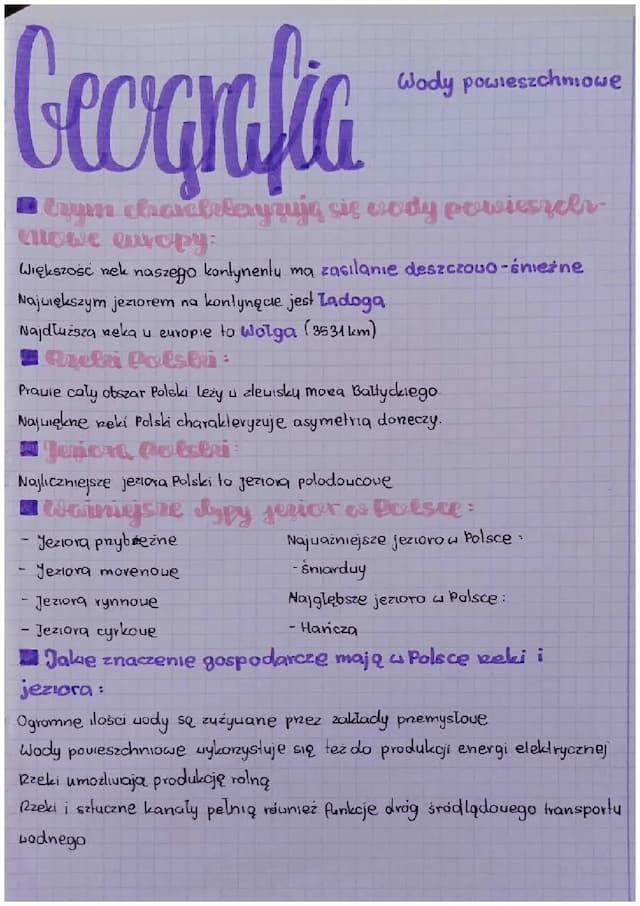 Geografia
Wody powieszchniowe
Czym charakteryzują się wody powieszch-
niowe europy:
Większość rzek naszego kontynentu ma zasilanie deszczowo-śnieżne
Największym jeziorem na kontynęcie jest Ładoga
Najdłuższa rzeka w europie to Wołga (3531km)
Rzeki Polski:
Prawie cały obszar Polski leży w zlewisku morza Bałtyckiego.
Największe rzeki Polski charakteryzuje asymetria dorzeczy.
Jeziora Polski:
Najliczniejsze jeziora Polski to jeziora polodowcowe
Ważniejsze typy jezior w Polsce:
- Jeziora przybrzeżne
- Jeziora morenowe
- Jeziora rynnowe
- Jeziora cyrkowe
Najważniejsze jezioro w Polsce:
- Śniardwy
Najgłębsze jezioro w Polsce:
- Hańcza
Jakie znaczenie gospodarcze mają w Polsce rzeki i
jeziora:
Ogromne ilości wody są zużywane przez zakłady przemysłowe
Wody powieszchniowe wykorzystuje się też do produkcji energi elektrycznej
Rzeki umożliwiają produkcję rolną
Rzeki i sztuczne kanały pełnią również funkcje dróg śródlądowego transportu
wodnego